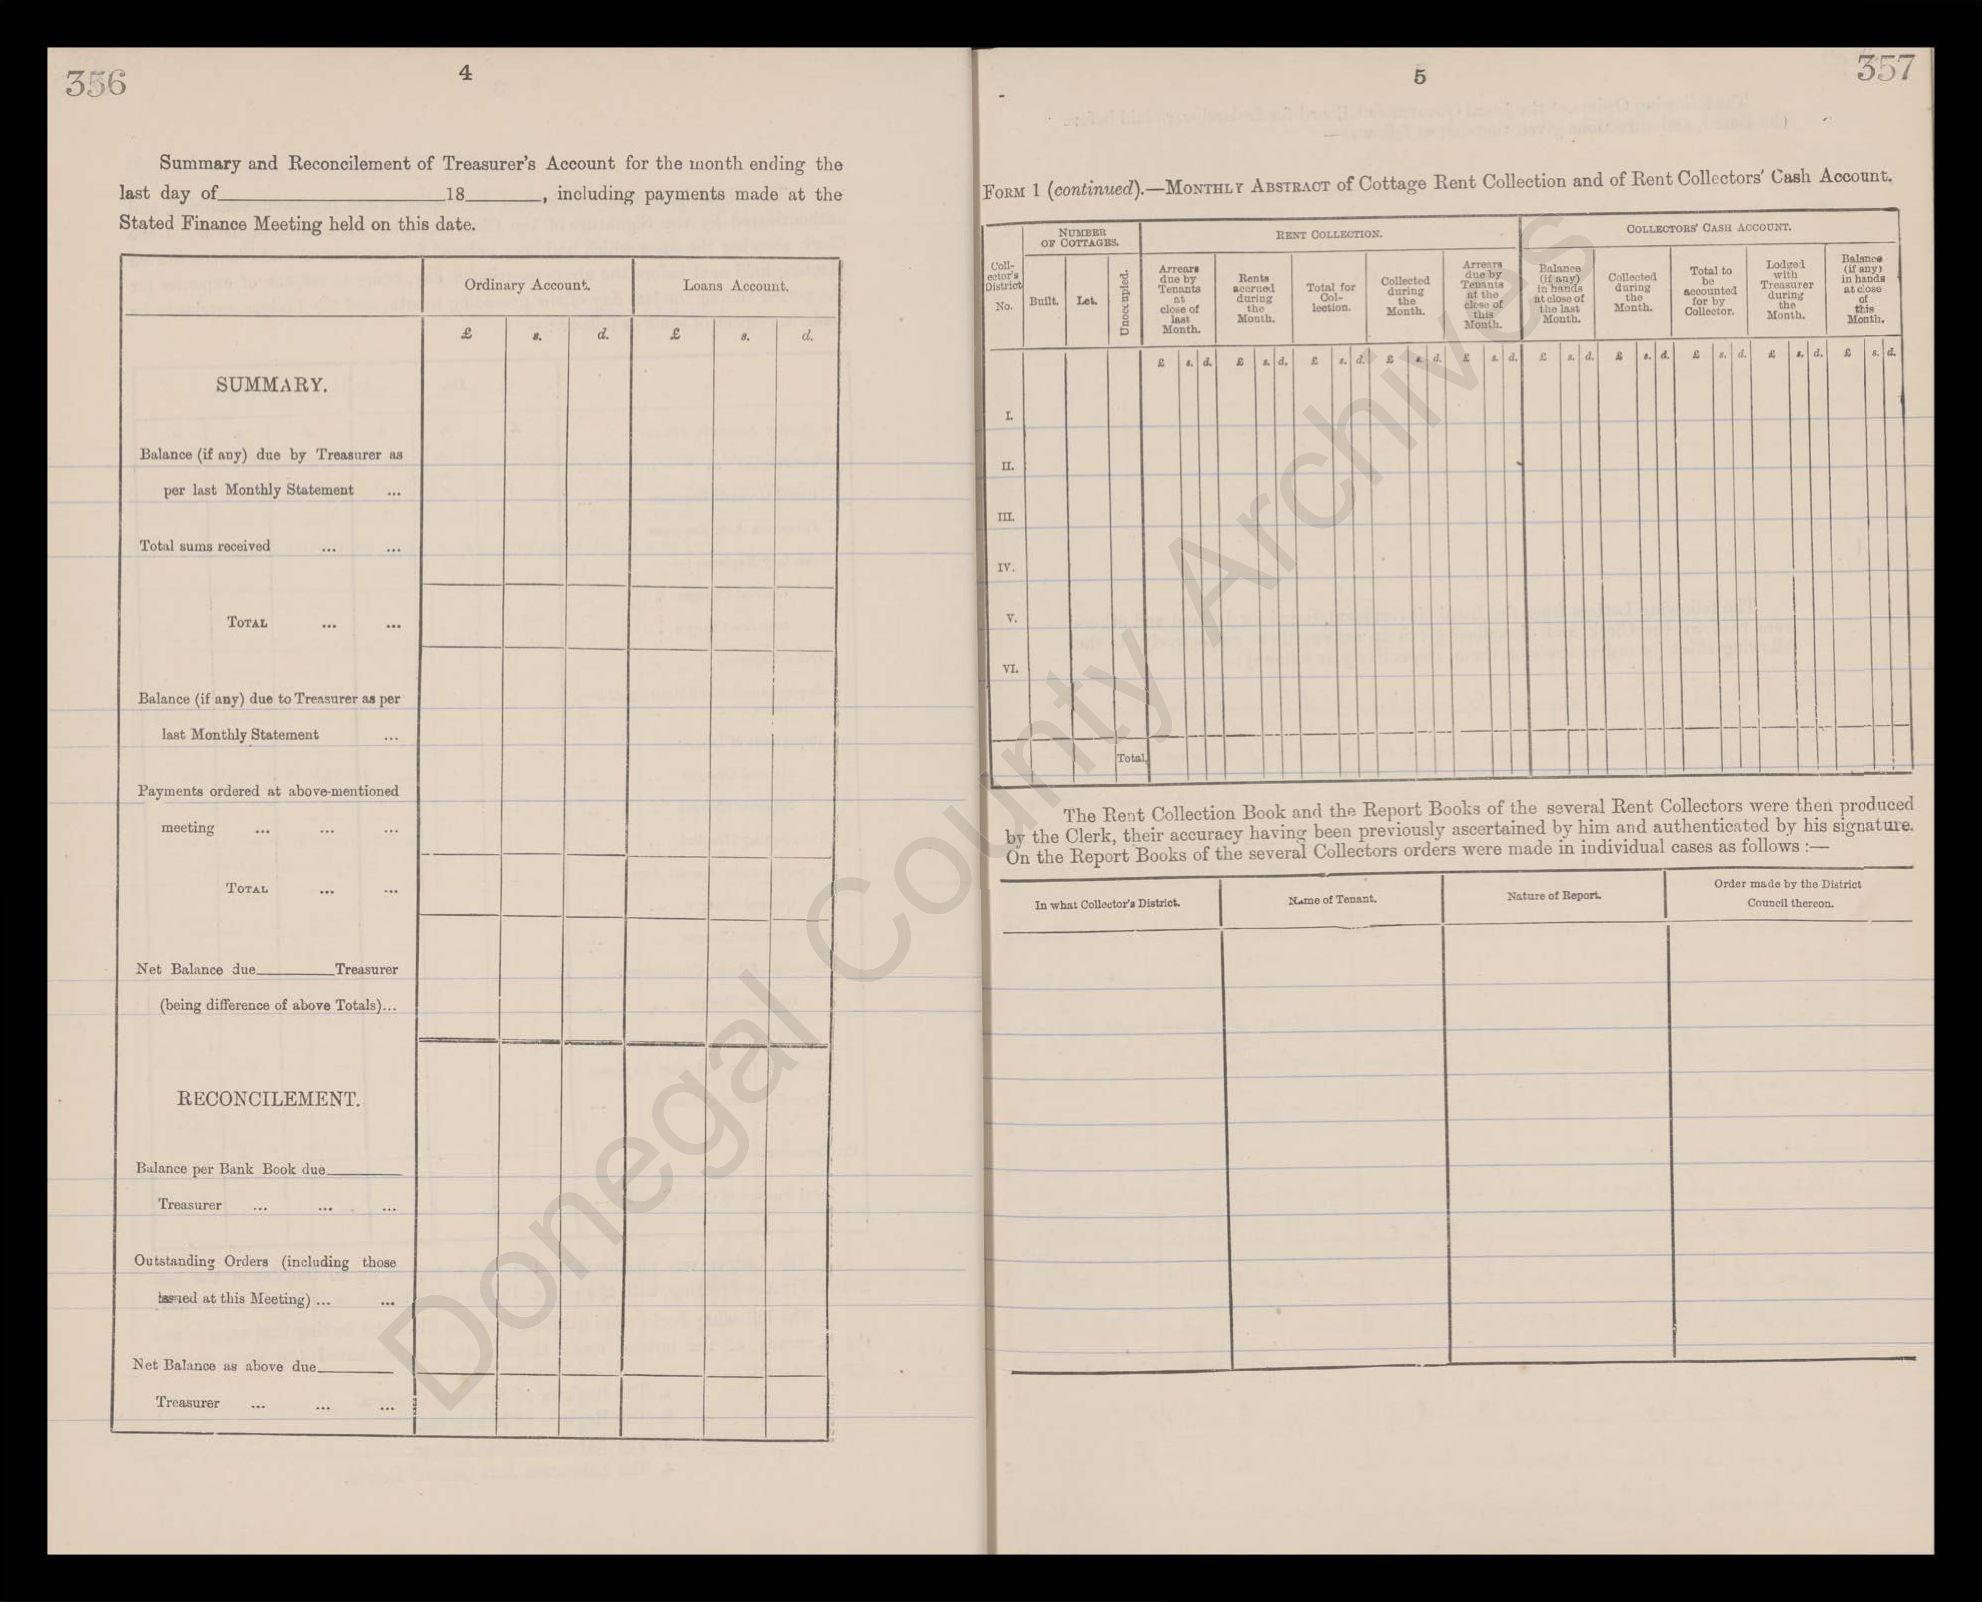 356
4
Summary and Reconcilement of Treasurer's Account for the month ending the
last day of 18 , including payments made at the
Stated Finance Meeting held on this date.
Ordinary Account. Loans Account.
£ s. d. £ s. d.
SUMMARY.
Balance (if any) due by Treasurer as
per last Monthly Statement ...
Total sums received ... ...
TOTAL ... ...
Balance (if any) due to Treasurer as per
last Monthly Statement ...
Payments ordered at above-mentioned
meeting ... ... ...
TOTAL ... ...
Net Balance due Treasurer
(being difference of above Totals)...
RECONCILEMENT.
Balance per Bank Book due
Treasurer ... ... ...
Outstanding Orders (including those
issued at this Meeting) ... ...
Net Balance as above due
Treasurer ... ... ...
5
357
FORM 1 (continued).—MONTHLY ABSTRACT of Cottage Rent Collection and of Rent Collectors' Cash Account.
Coll-
ector's
District
No.
NUMBER
OF COTTAGES.
Built.
Let.
Unoccupied.
RENT COLLECTION.
Arrears
due by
Tenants
at
close of
last
Month.
Rents
accrued
during
the
Month.
Total for
Col-
lection.
Collected
during
the
Month.
Arrears
due by
Tenants
at the
close of
this
Month.
COLLECTORS' CASH ACCOUNT.
Balance
(if any)
in hands
at close of
the last
Month.
Collected
during
the
Month.
Total to
be
accounted
for by
Collector.
Lodged
with
Treasurer
during
the
Month.
Balance
(if any)
in hands
at close
of
this
Month.
£ s. d. £ s. d. £ s. d. £ s. d. £ s. d. £ s. d. £ s. d. £ s. d. £ s. d. £ s. d.
I.
II.
III.
IV.
V.
VI.
Total.
The Rent Collection Book and the Report Books of the several Rent Collectors were then produced
by the Clerk, their accuracy having been previously ascertained by him and authenticated by his signature.
On the Report Books of the several Collectors orders were made in individual cases as follows :—
In what Collector's District.
Name of Tenant.
Nature of Report.
Order made by the District
Council thereon.
Donegal County Archives